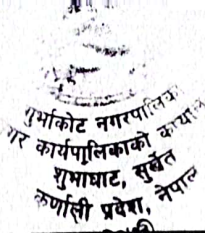 गुर्भाकोट नगरपालिका
नगर कार्यपालिकाको कार्यालय
शुभाघाट, सुर्खेत
कर्णाली प्रदेश, नेपाल